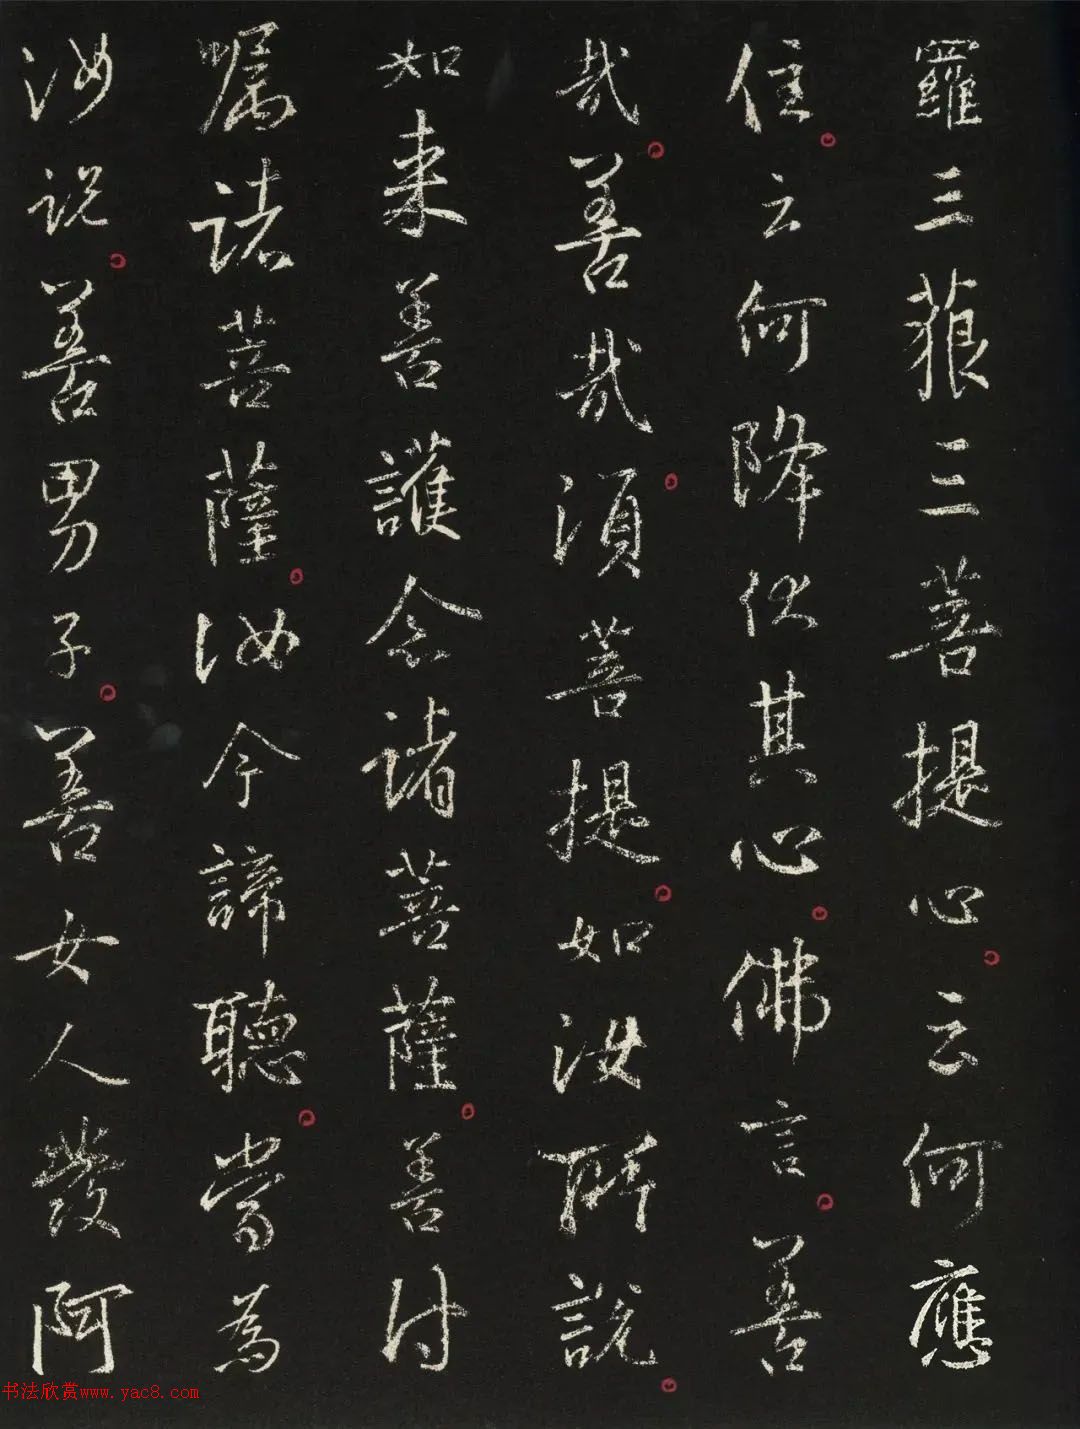 羅三藐三菩提心。云何應
住。云何降伏其心。佛言。善
哉。善哉。須菩提。如汝所說。
如来善護念諸菩薩。善付
嘱諸菩薩。汝今諦聽。當為
汝説。善男子。善女人發阿
书法欣赏www.yac8.com